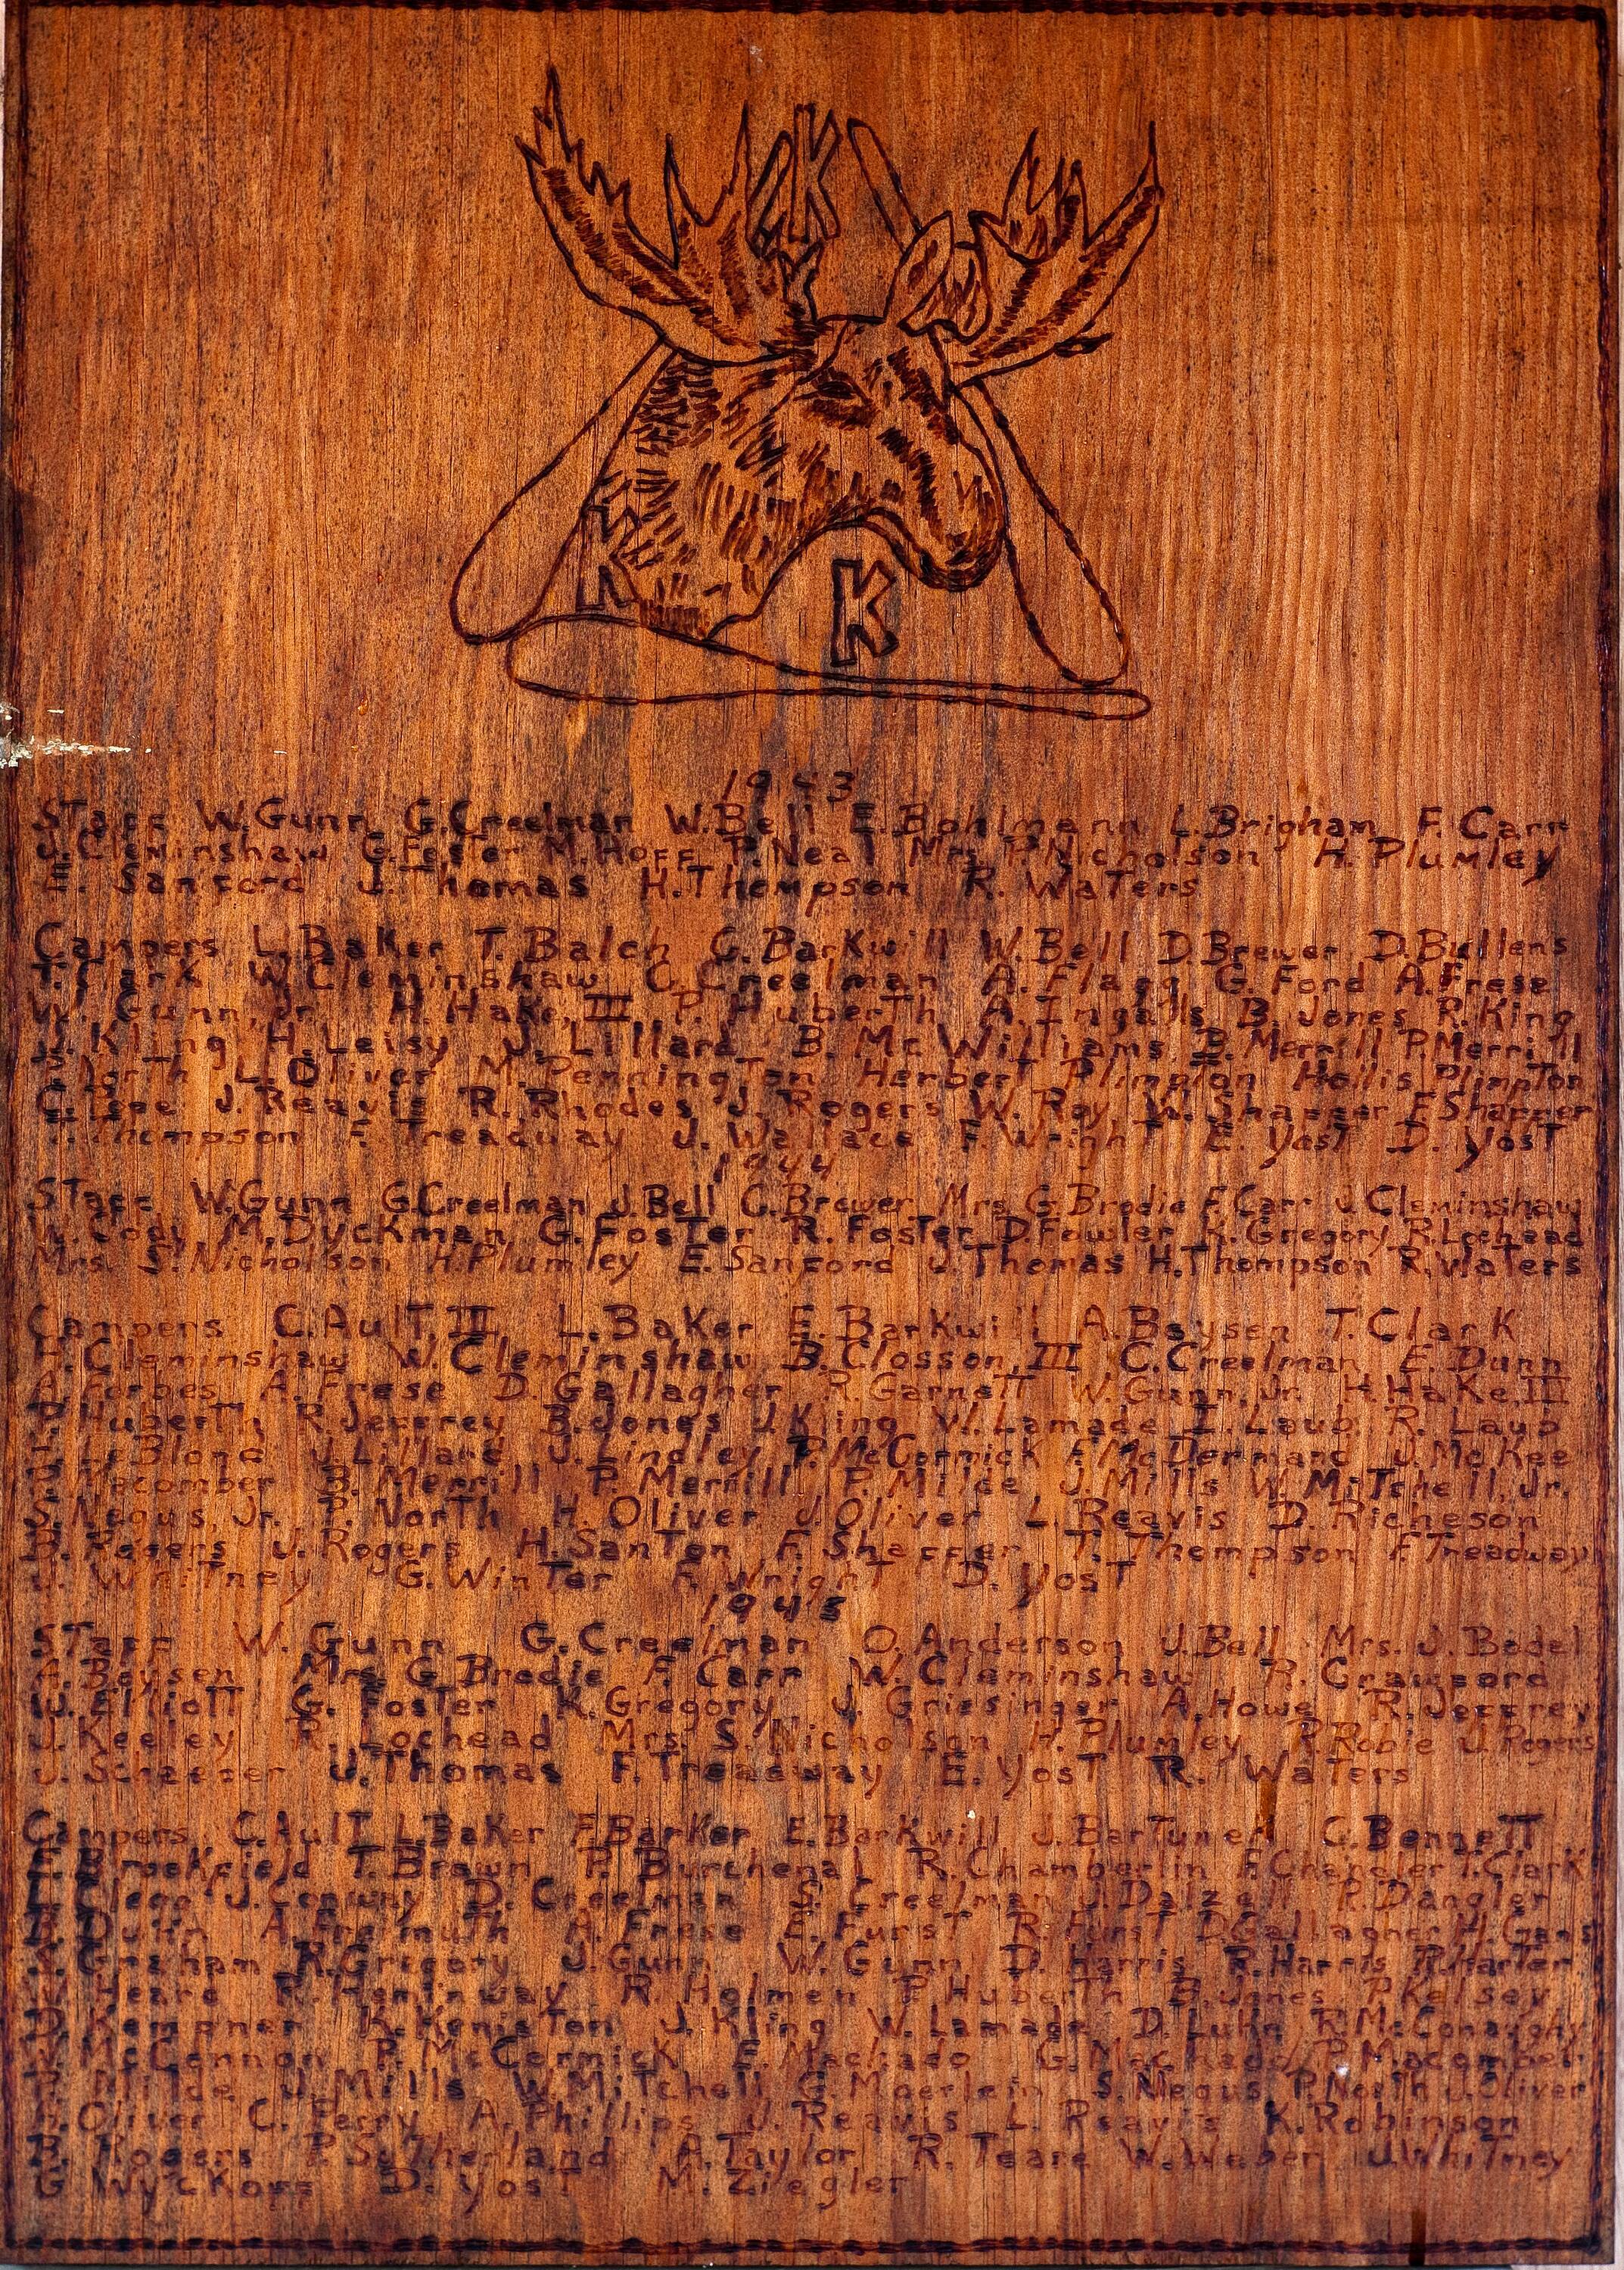 K
K
K
1943
Staff W.Gunn G.Creelman W.Bell E.Bohlmann L.Brigham F.Carr
J.Cleminshaw G.Foster M.Hoff P.Neal Mrs. P.Nicholson H.Plumley
E. Sanford J.Thomas H.Thompson R. Waters
Campers L.Baker T.Balch G.Barkwill W.Bell D.Brewer D.Bullens
T.Clark W.Cleminshaw C.Creelman A.Flagg G.Ford A.Frese
W. Gunn, Jr. H. Hake, III P. Huberth A. Ingalls B. Jones R. King
J. Kling H. Leisy J. Lillard B. McWilliams B. Merrill P. Merrill
P. North L. Oliver M. Pennington Herbert Plimpton Hollis Plimpton
C. Pope J. Reavis R. Rhodes J. Rogers W. Roy W. Shaffer F. Shaffer
T. Thompson F. Treadway J. Wallace F. Wright E. Yost D. Yost
1944
Staff W.Gunn G.Creelman J.Bell C.Brewer Mrs. G.Brodie F.Carr J.Cleminshaw
W. Cody M.Dyckman G.Foster R.Foster D.Fowler K.Gregory R.Lochead
Mrs. S.Nicholson H.Plumley E.Sanford J.Thomas H.Thompson R.Waters
Campers C.Ault, II L.Baker E. Barkwill A.Baysen T.Clark
H.Cleminshaw W.Cleminshaw B.Closson, III C.Creelman E. Dunn
A. Forbes A. Frese D. Gallagher R.Garnett W.Gunn, Jr. H.Hake, III
P. Huberth R.Jeffrey B.Jones J.Kling W.Lamade I. Laub R. Laub
T. LeBlond J. Lillard J. Lindley P.McCormick F.McDermand J. McKee
P. Macomber B. Merrill P. Merrill P. Milde J. Mills W. Mitchell, Jr.
S. Negus, Jr. P. North H. Oliver J. Oliver L. Reavis D. Richeson
B. Rogers J. Rogers H. Santon F. Shaffer T. Thompson F. Treadway
J. Whitney G. Winter F. Wright D. Yost
1945
Staff W. Gunn G. Creelman O. Anderson J. Bell Mrs. J. Badel
A. Baysen Mrs. G. Brodie F. Carr W. Cleminshaw R. Crawford
W. Elliott G. Foster K. Gregory J. Griesinger A. Howe R. Jeffrey
J. Keeley R. Lochead Mrs. S. Nicholson H. Plumley R. Robie J. Rogers
J. Schaefer J. Thomas F. Treadway E. Yost R. Waters
Campers C. Ault L. Baker F. Barker E. Barkwill J. Bartunek C. Bennett
E. Brookfield T. Brown P. Burchenal R. Chamberlin F. Chandler T. Clark
L. Clegg J. Conway D. Creelman S. Creelman J. Dalzell R. Dangler
B. Dunn A. Freimuth A. Frese E. Furst R. Furst D. Gallagher H. Gans
K. Graham R. Gregory J. Gunn W. Gunn D. Harris R. Harris R. Harter
Heard R. Heminway R. Holmen P. Huberth B. Jones P. Kelsey
D. Kempner K. Keniston J. Kling W. Lamade D. Luhn R. McConaughy
W. McCennan P. McCormick E. Machado G. Machado P. Macomber
P. Milde J. Mills W. Mitchell G. Moerlein S. Negus P. North J. Oliver
H. Oliver C. Perry A. Phillips J. Reavis L. Reavis K. Robinson
B. Rogers P. Sutherland A. Taylor R. Teare W. Weber J. Whitney
G. Wyckoff D. Yost M. Ziegler